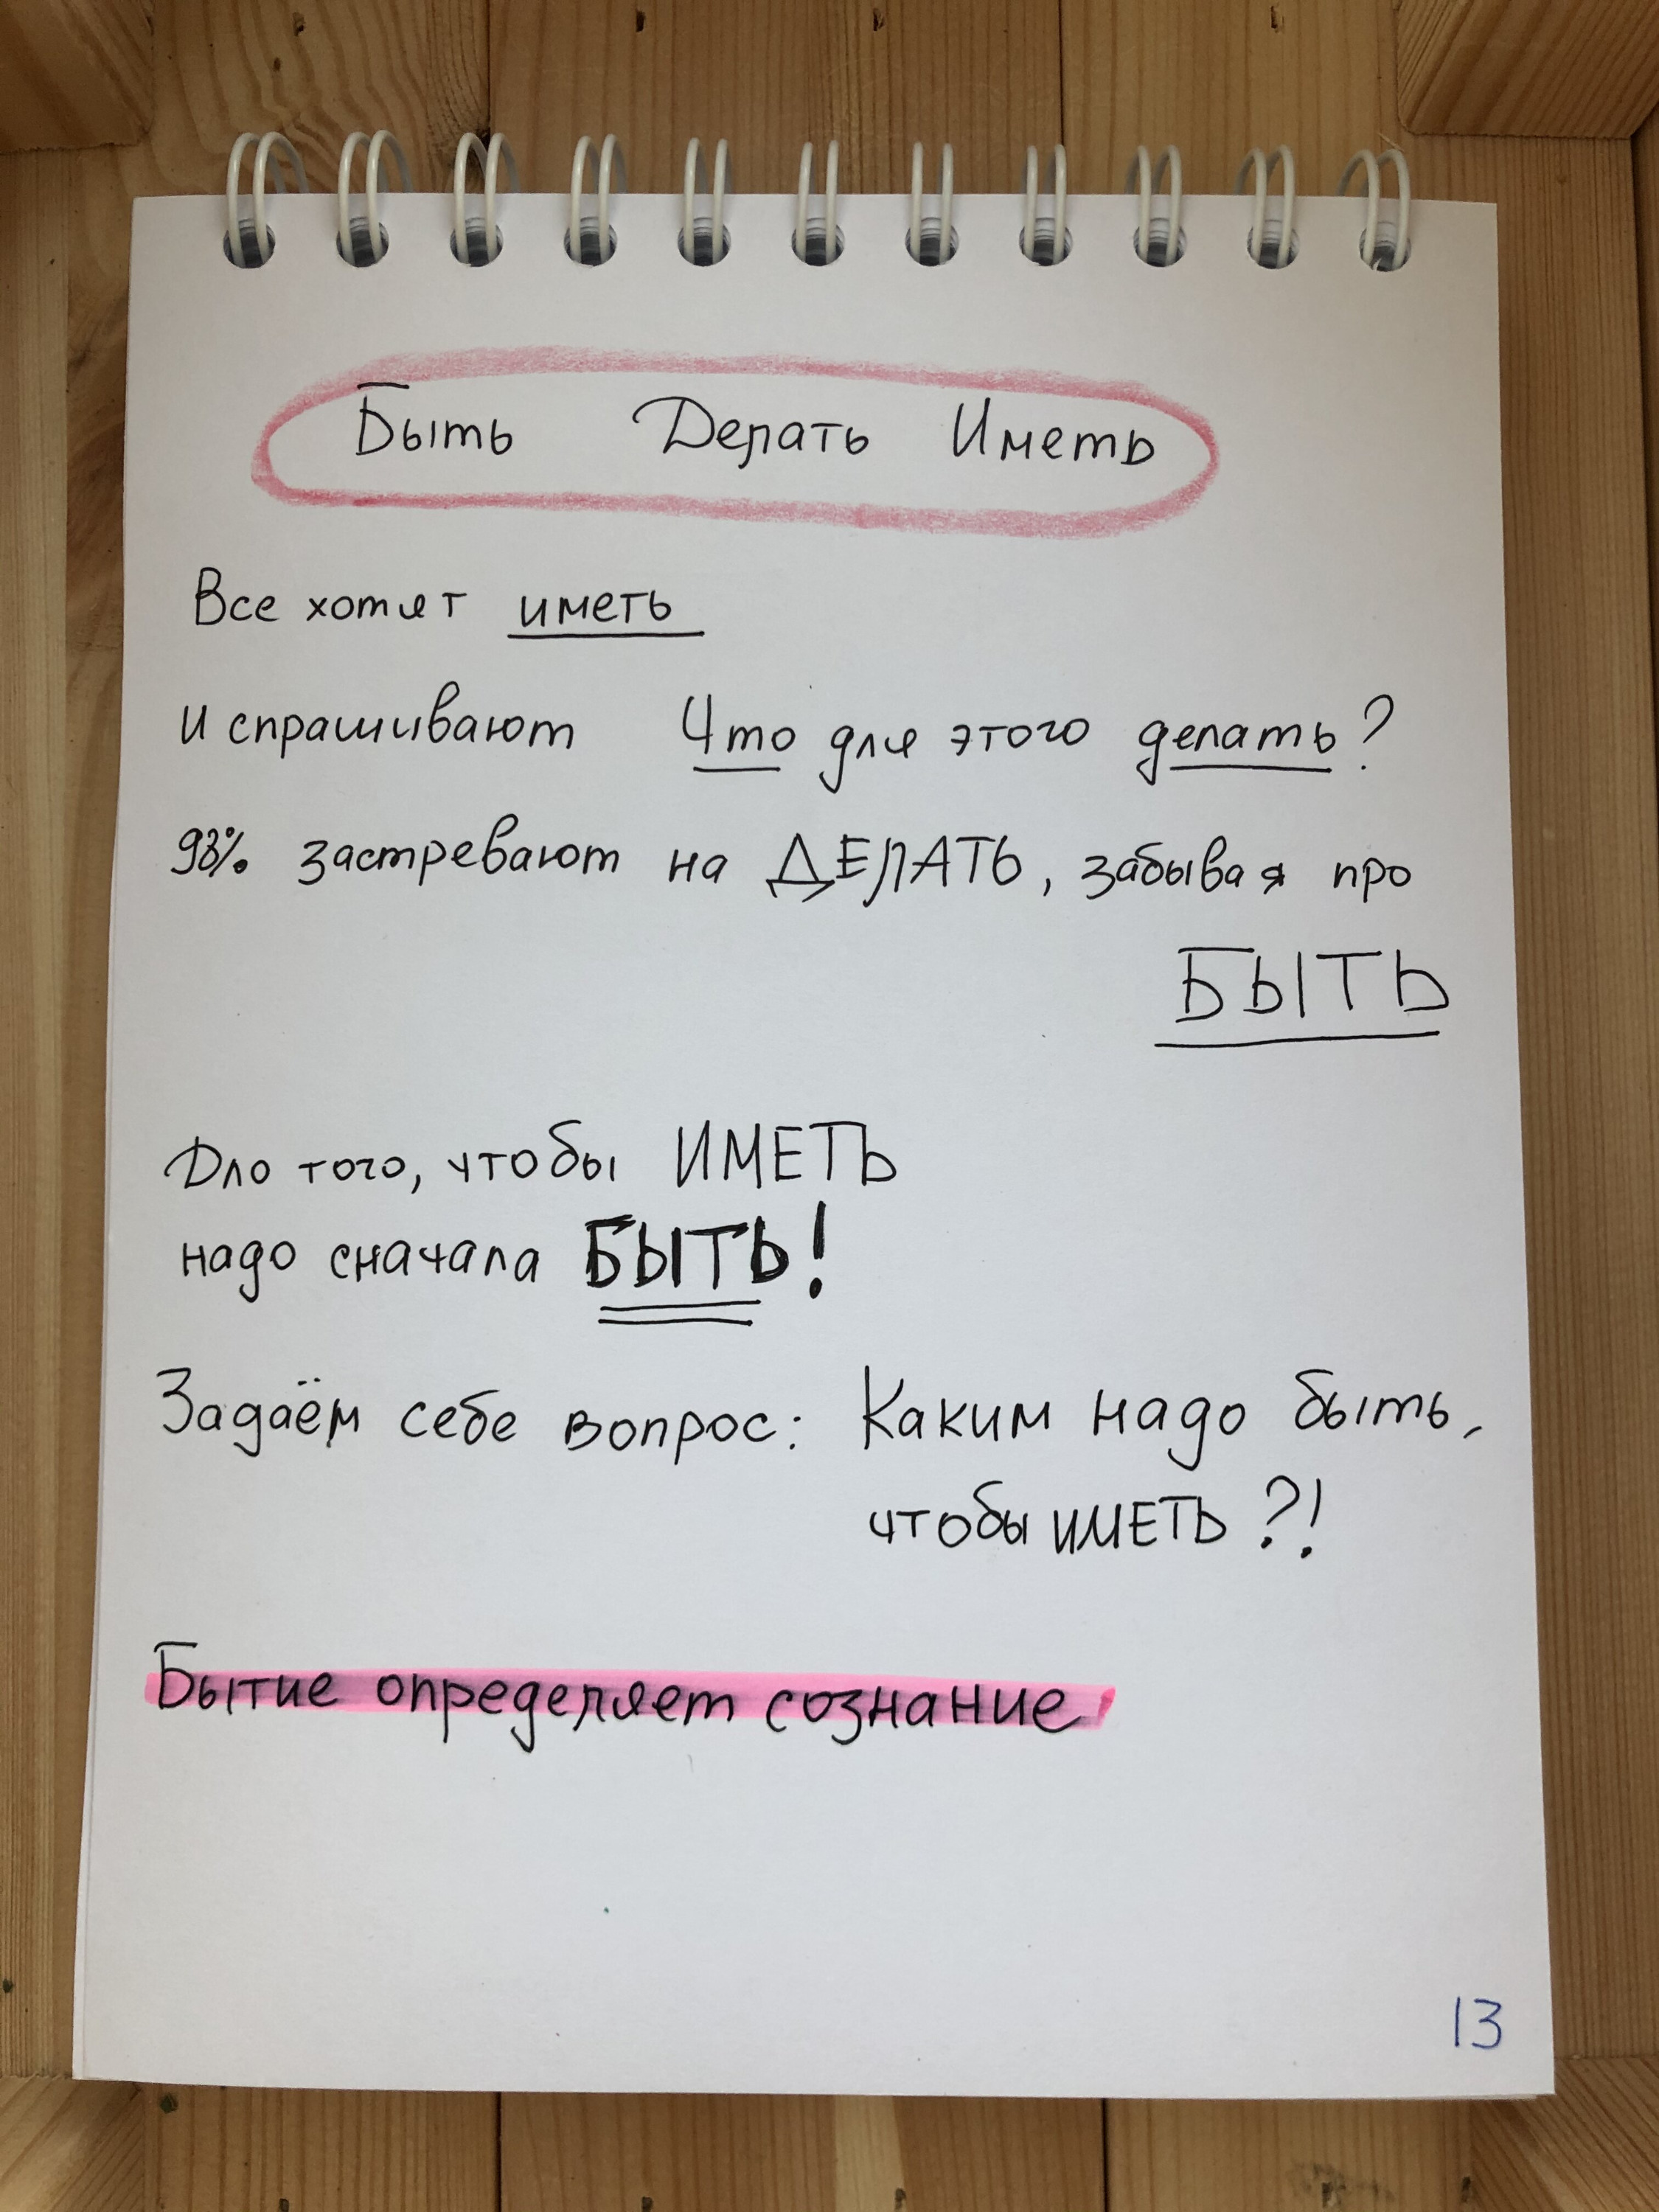 Быть Делать Иметь
Все хотят иметь
и спрашивают Что для этого делать?
93% застревают на ДЕЛАТЬ, забывая про
БЫТЬ
Дло того, чтобы ИМЕТЬ
надо сначала БЫТЬ!
Задаём себе вопрос: Каким надо быть,
чтобы ИМЕТЬ?!
Бытие определяет сознание
13